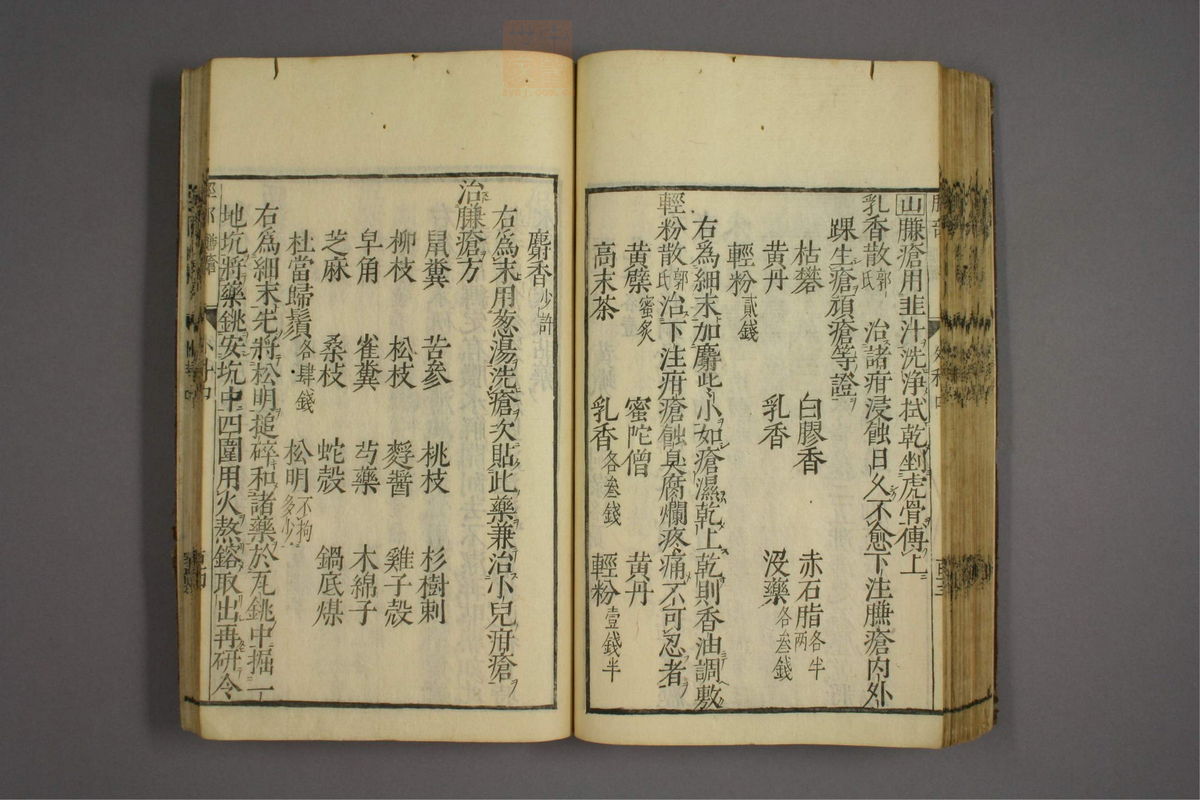 山臁瘡用韭汁洗淨拭乾剉虎骨傅上
乳香散郭氏 治諸疳浸蝕日久不愈下注臁瘡內外
踝生瘡頑瘡等證
枯礬 白膠香 赤石脂各半兩
黃丹 乳香 沒藥各叁錢
輕粉貳錢
右爲細末加麝此小如瘡濕乾上乾則香油調敷
輕粉散郭氏 治下注疳瘡蝕臭腐爛疼痛不可忍者
黃蘗蜜炙 蜜陀僧 黃丹
高末茶 乳香各叁錢 輕粉壹錢半
麝香少許
右爲末用葱湯洗瘡次貼此藥兼治小兒疳瘡
治臁瘡方
鼠糞 苦參 桃枝 杉樹刺
柳枝 松枝 麪醬 雞子殼
皁角 雀糞 芍藥 木綿子
芝麻 桑枝 蛇殼 鍋底煤
杜當歸鬚各肆錢 松明不拘多少
右爲細末先將松明搥碎和諸藥於瓦銚中掘一
地坑將藥銚安坑中四圍用火熬鎔取出再研令